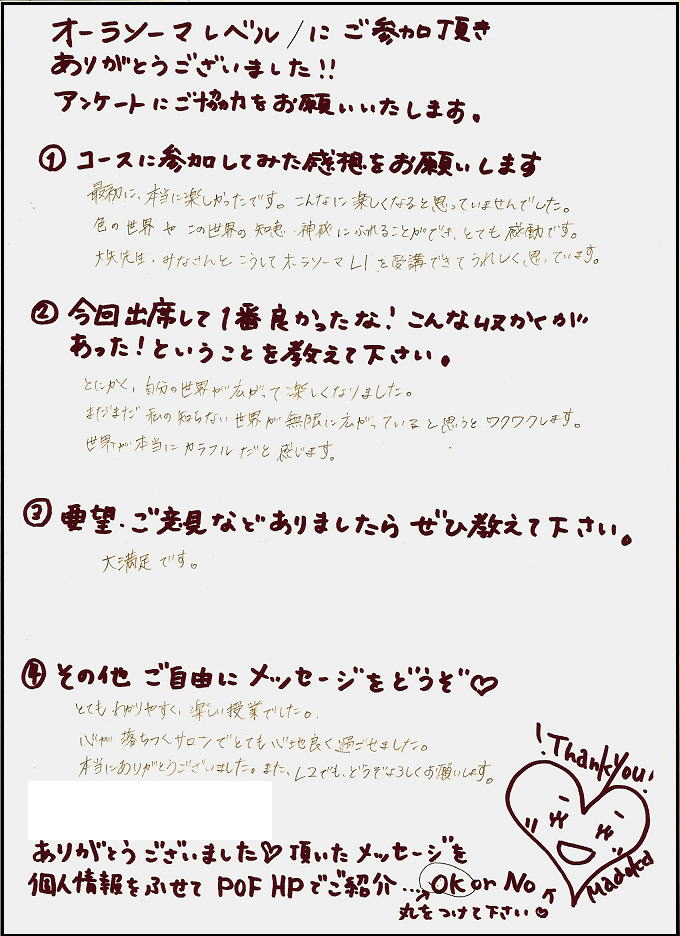 オーラソーマレベル1に ご参加頂き
ありがとうございました!!
アンケートにご協力をお願いいたします。
① コースに参加してみた感想をお願いします
最初に、本当に楽しかったです。こんなに楽しくなると思っていませんでした。
色の世界や この世界の 知恵・神秘にふれることができ、とても 感動です。
大矢先生、みなさんと こうして オーラソーマ L1 を受講できて うれしく 思っています。
② 今回出席して 1番良かったな! こんな収かくが
あった! ということを教えて下さい。
とにかく、自分の世界が広がって楽しくなりました。
まだまだ 私の知らない 世界が 無限に広がっている と思うと ワクワクします。
世界が本当に カラフル だと 感じます。
③ 要望・ご意見などありましたら ぜひ教えて下さい。
大満足です。
④ その他 ご自由に メッセージをどうぞ♡
とても わかりやすく、楽しい授業でした。
心が 落ちつくサロンでとても心地良く過ごせました。
本当にありがとうございました。また、L2でも、どうぞよろしくお願いします。
!ThankYou!
Madoka
ありがとうございました♡ 頂いた メッセージを
個人情報をふせて POF HPでご紹介 … OK or No
丸をつけて下さい♡